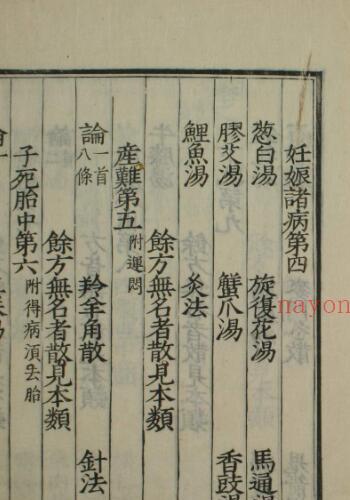 妊娠諸病第四
葱白湯 旋復花湯 馬通湯
膠艾湯 蟹爪湯 香豉湯
鯉魚湯 灸法
餘方無名者散見本類
産難第五 附運悶
論一首八條 羚羊角散 針法
餘方無名者散見本類
子死胎中第六 附得病須去胎
nayon